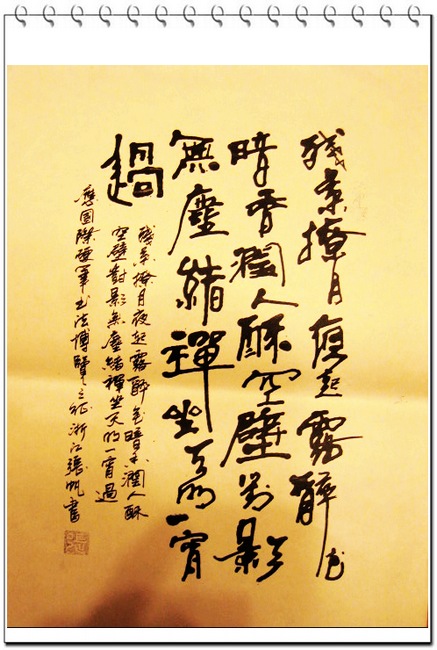 殘景撩月夜起霧醉花
暗香潤人酥空壁對影
無塵結禪坐天明一宵
過
殘景撩月夜起霧醉花暗香潤人酥
空壁對影無塵結禪坐天明一宵過
應國際硬筆書法博覽之征浙江張帆書